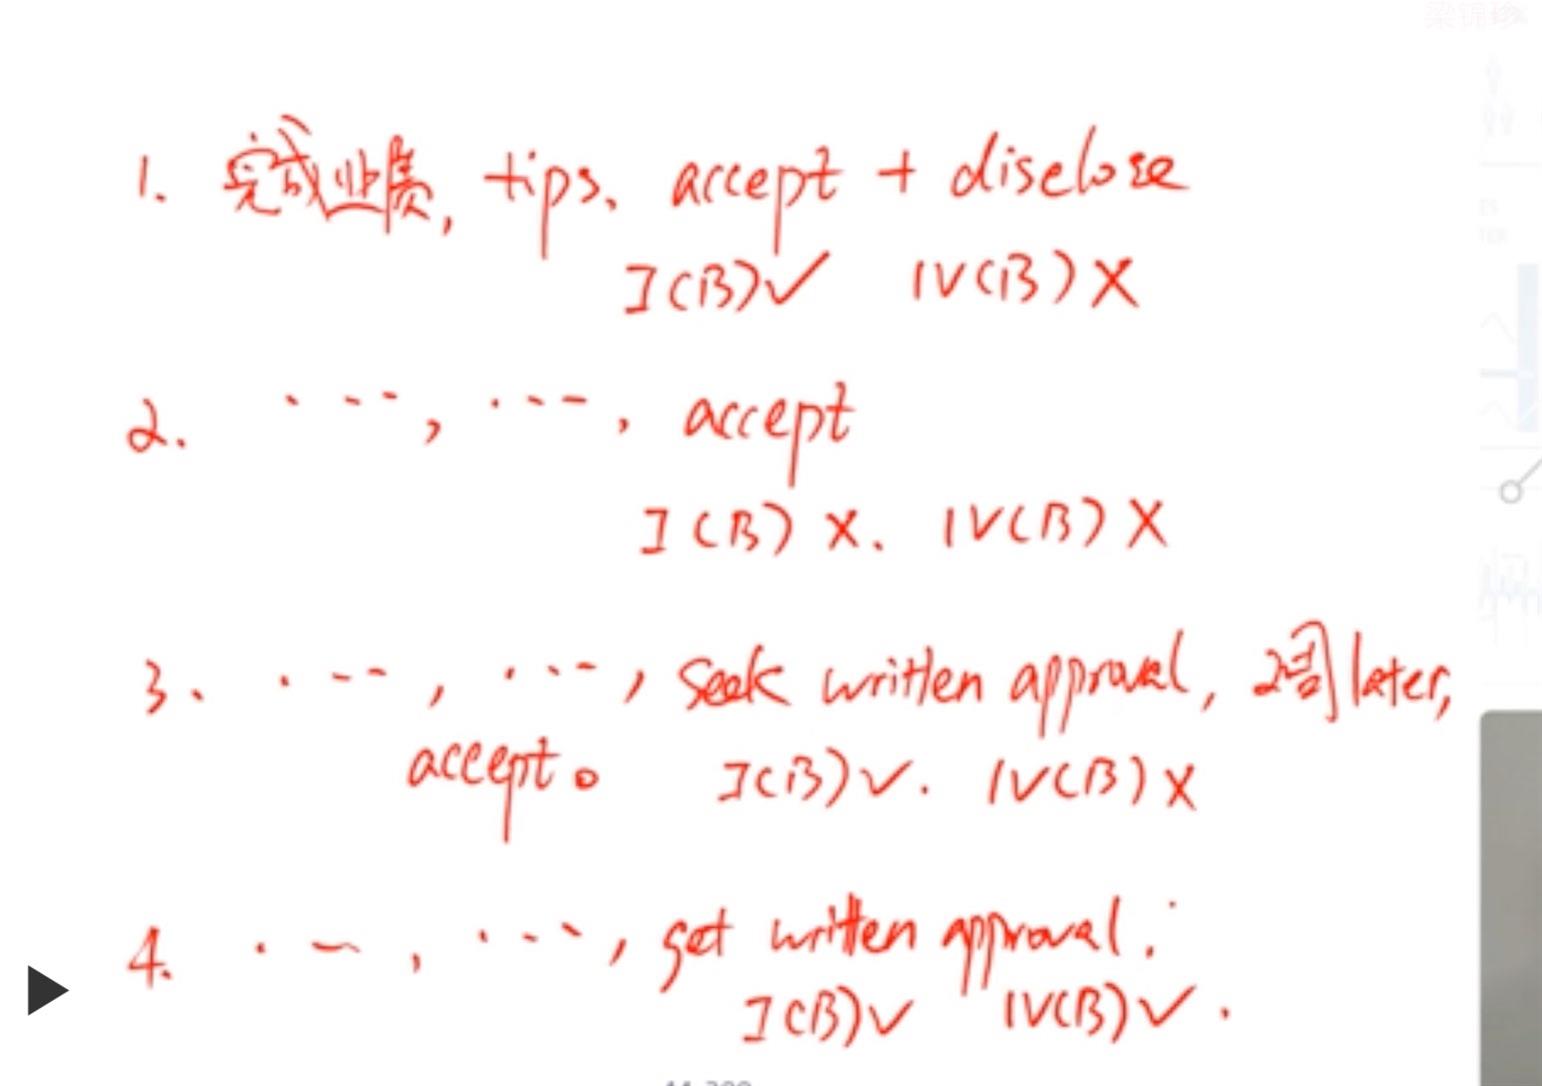 梁锦珍
1. 完成业绩, tips, accept + disclose
I(B)✓ IV(B)X
2. ..., ..., accept
I(B) X. IV(B) X
3. ..., ..., Seek written approval, 2周 later,
accept。 I(B)✓. IV(B) X
4. ..., ..., get written approval.
I(B)✓ IV(B)✓.